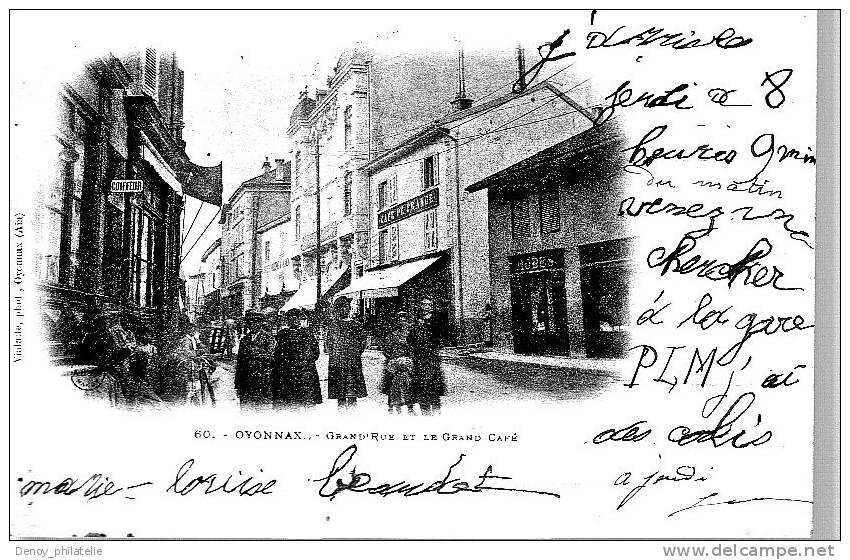 j'arrive
jeudi a 8
heures 9 min
du matin
venez un
chercher
à la gare
PLM j'ai
des colis
a jeudi
COIFFEUR
CAFÉ DE FRANCE
MODES
Violatte, phot., Oyonnax (Ain)
60. - OYONNAX. - GRAND'RUE ET LE GRAND CAFÉ
marie-louise Beaudet
Denoy_philatelie
delcampe.net